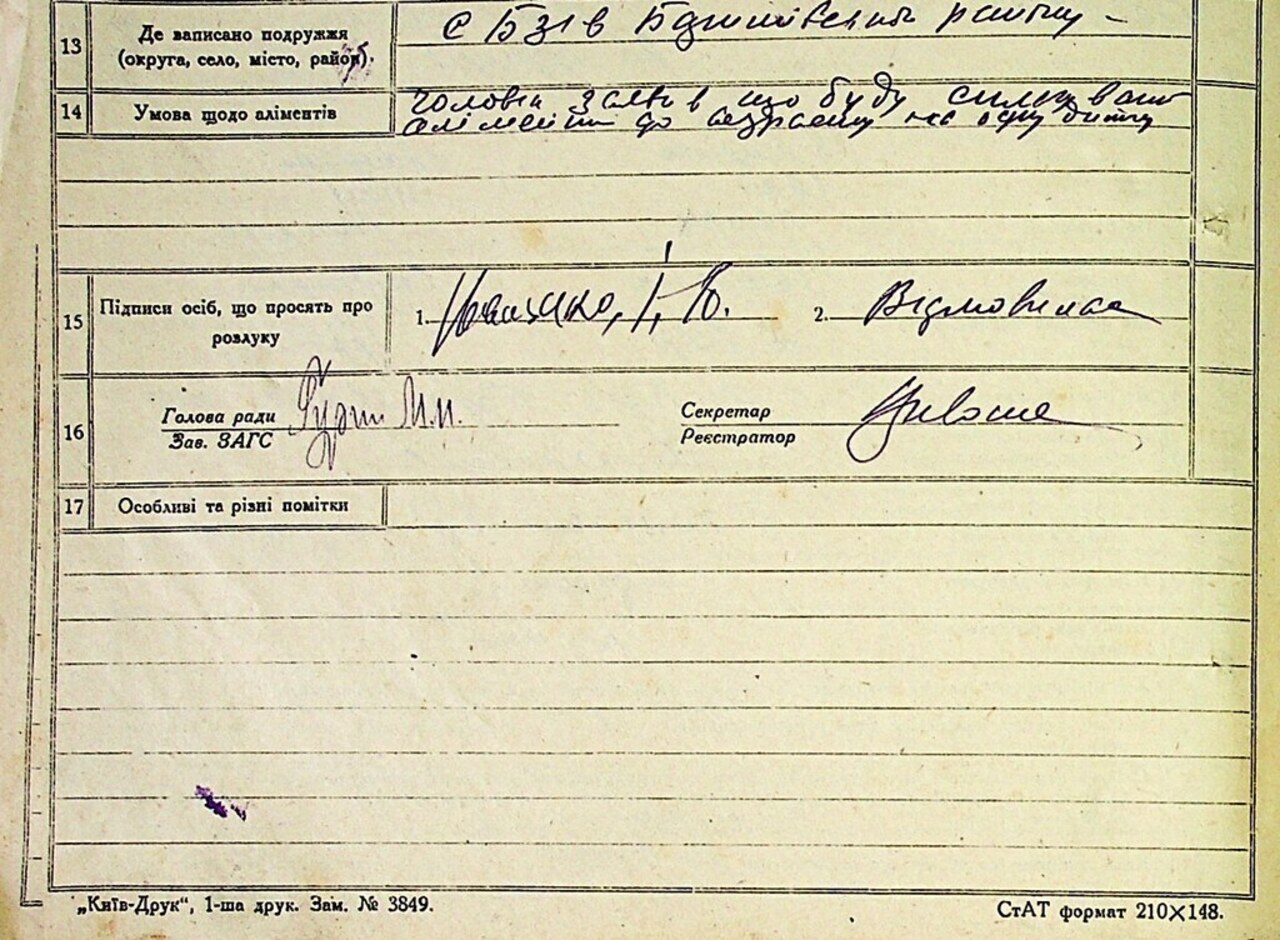 13 Де записано подружжя (округа, село, місто, район). с Бзів
14 Умова щодо аліментів чоловік заявив що буду
аліменти до на одну дитину
15 Підписи осіб, що просять про розлуку 1. І. В. 2. Відмовилась
16 Голова ради М.М. Секретар
Зав. ЗАГС Реєстратор
17 Особливі та різні помітки
„Київ-Друк“, 1-ша друк. Зам. № 3849. СтАТ формат 210×148.